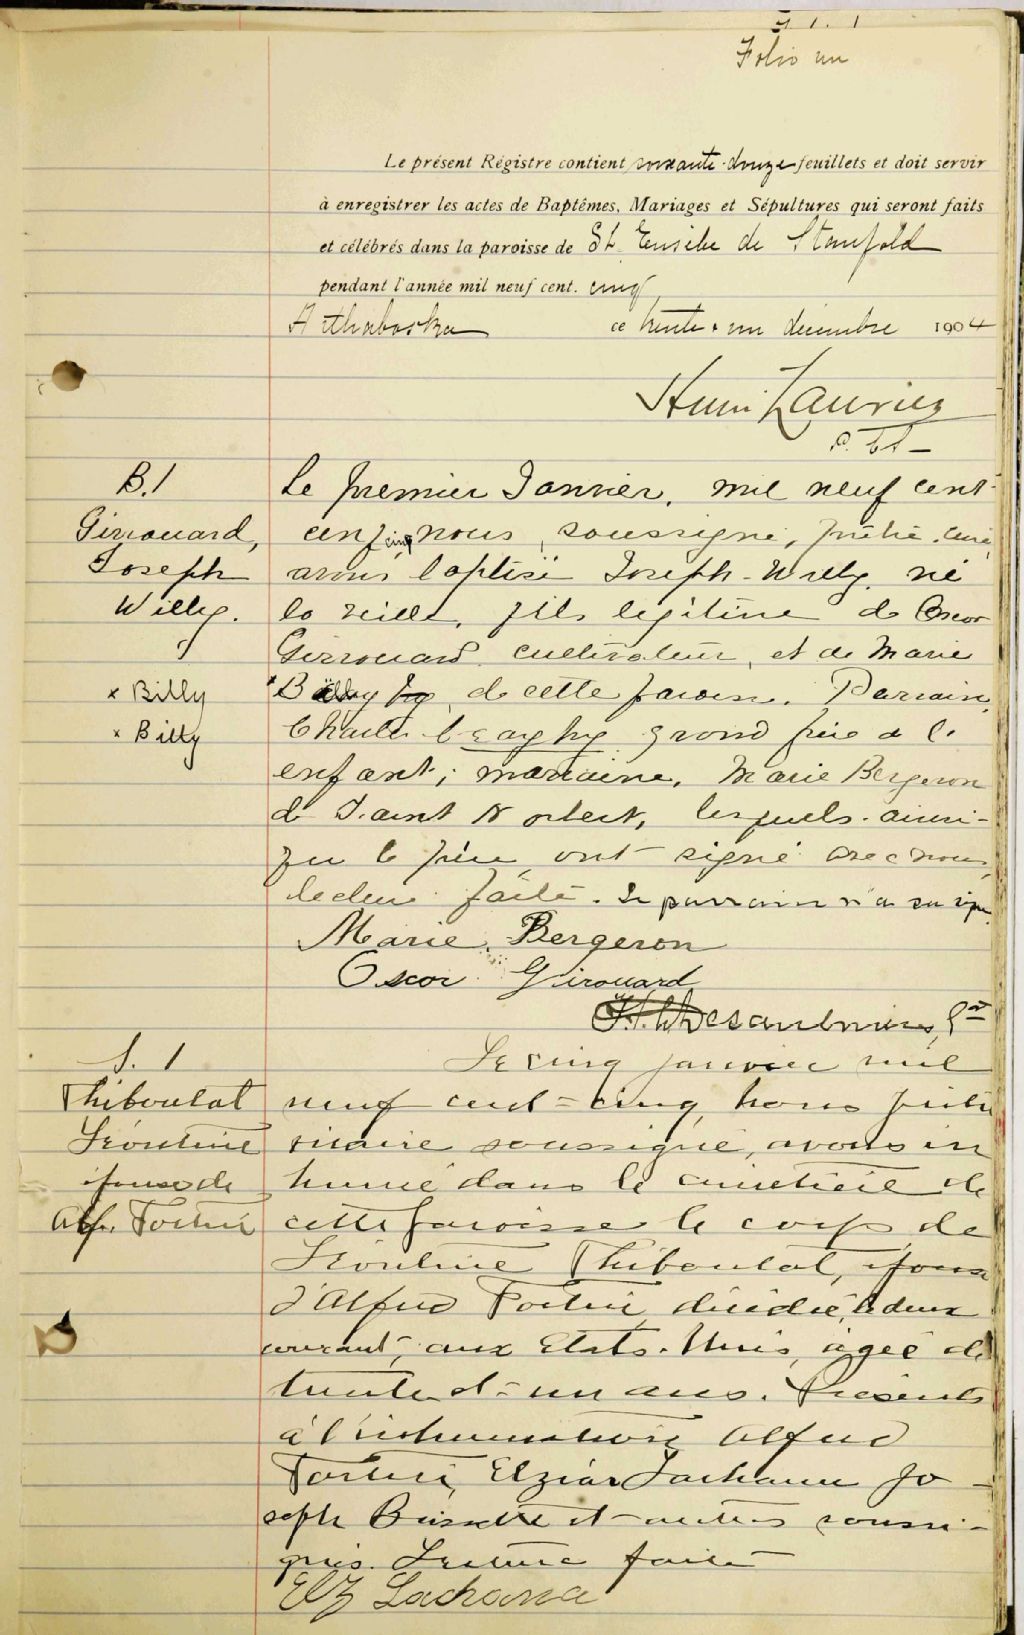 Folio un
Le présent Régistre contient soixante-douze feuillets et doit servir
à enregistrer les actes de Baptêmes, Mariages et Sépultures qui seront faits
et célébrés dans la paroisse de St. Eusèbe de Stanfold
pendant l'année mil neuf cent. cinq
Arthabaska ce trente & un décembre 1904
Henri Laurier
B.1
Girrouard,
Joseph
Willy.
x Billy
x Billy
Le premier Janvier, mil neuf cent
cinq nous, soussigné, prêtre, curé
avons baptisé Joseph-Willy, né
la veille, fils légitime de Oscar
Girrouard, cultivateur, et de Marie
de cette paroisse. Parrain,
Charles grand père de l'
enfant; marraine, Marie Bergeron
de Saint Norbert, lesquels ainsi-
que le père ont signé avec nous,
lecture faite. Le parrain n'a su signer
Marie Bergeron
Oscar Girouard
Desaulniers,
S. 1
Thiboutat
Léontine
épouse de
Alf. Fortier
Le cinq janvier mil
neuf cent-cinq, nous prêtre
vicaire soussigné, avons in
humé dans le cimetière de
cette paroisse le corps de
Léontine Thiboutat, épouse
d'Alfred Fortier, décédée, le deux
courant, aux Etats-Unis, agée de
trente et-un ans. Présents
à l'inhumation Alfred
Fortier, Elzéar Lachance Jo-
seph et autres soussi-
gnés. Lecture faite
Elz Lachance